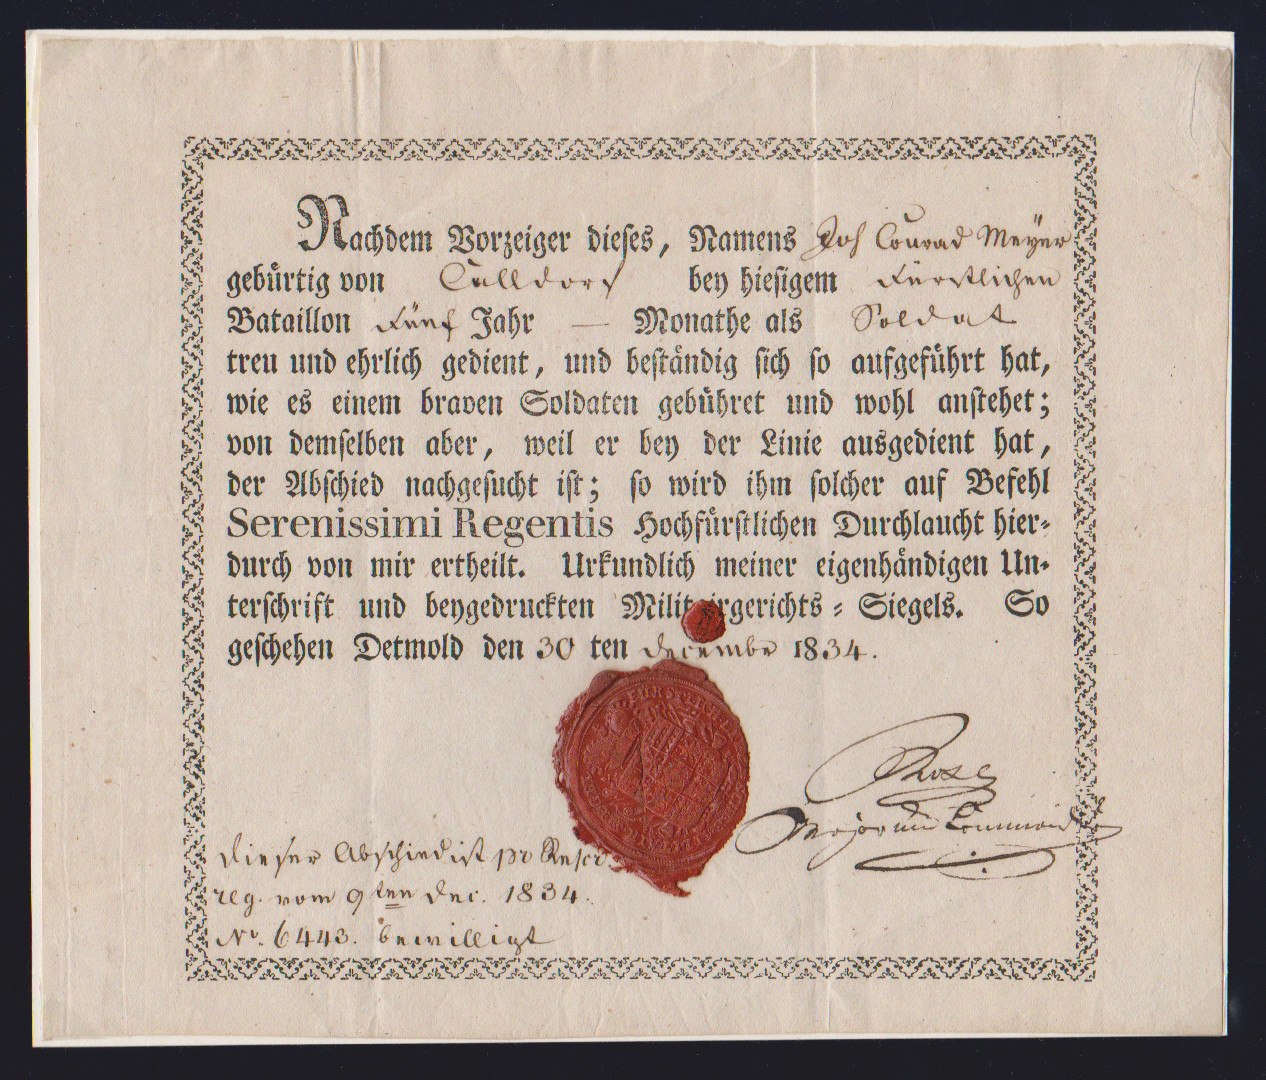 Nachdem Vorzeiger dieses, Namens Joh Conrad Meyer
gebürtig von Calldorf bey hiesigem Fürstlichen
Bataillon Fünf Jahr — Monathe als Soldat
treu und ehrlich gedient, und beständig sich so aufgeführt hat,
wie es einem braven Soldaten gebühret und wohl anstehet;
von demselben aber, weil er bey der Linie ausgedient hat,
der Abschied nachgesucht ist; so wird ihm solcher auf Befehl
Serenissimi Regentis Hochfürstlichen Durchlaucht hier-
durch von mir ertheilt. Urkundlich meiner eigenhändigen Un-
terschrift und beygedruckten Militairgerichts-Siegels. So
geschehen Detmold den 30 ten decembr 1834.
Rose
Major und
dieser Abschied ist pr Rescr
reg. vom 9ten dec. 1834.
No. 6443. bewilligt